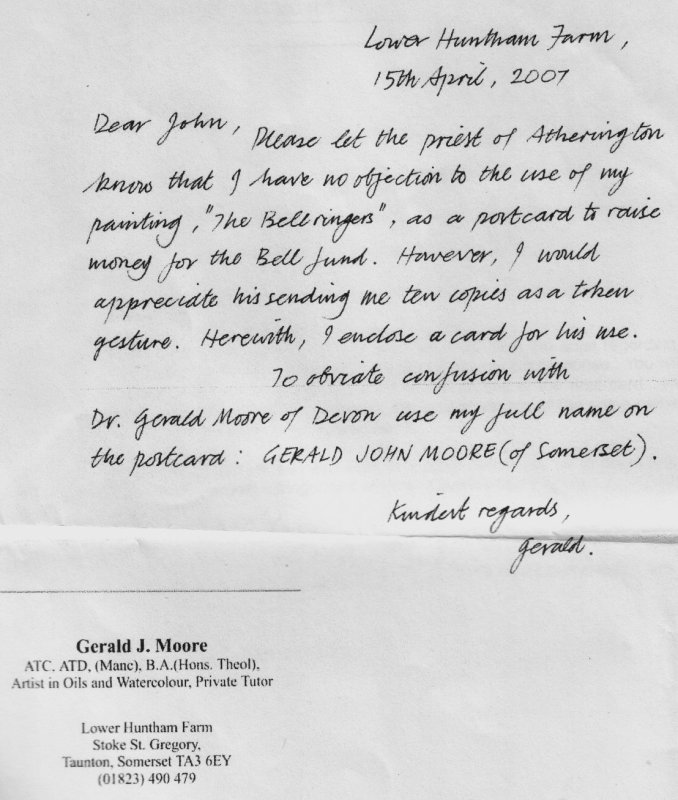 Lower Huntham Farm,
15th April, 2007
Dear John,
Please let the priest of Atherington
know that I have no objection to the use of my
painting, "The Bellringers", as a postcard to raise
money for the Bell fund. However, I would
appreciate his sending me ten copies as a token
gesture. Herewith, I enclose a card for his use.
To obviate confusion with
Dr. Gerald Moore of Devon use my full name on
the postcard: GERALD JOHN MOORE (of Somerset).
Kindest regards,
Gerald.
Gerald J. Moore
ATC, ATD, (Manc), B.A.(Hons. Theol),
Artist in Oils and Watercolour, Private Tutor
Lower Huntham Farm
Stoke St. Gregory,
Taunton, Somerset TA3 6EY
(01823) 490 479